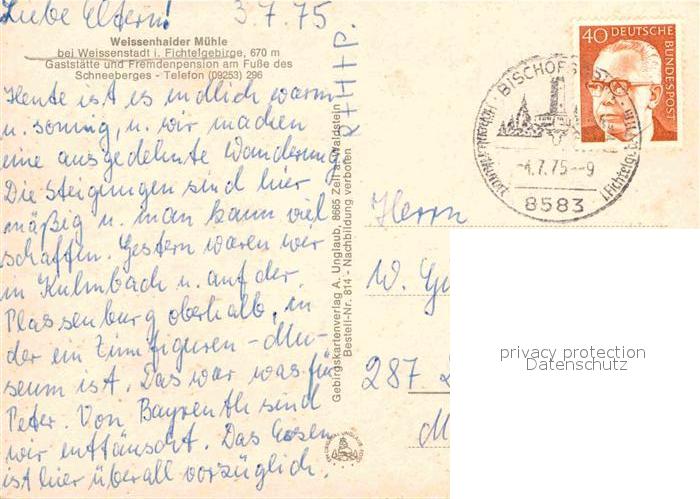 Liebe Eltern! 3.7.75.
Weissenhaider Mühle
bei Weissenstadt i. Fichtelgebirge, 670 m
Gaststätte und Fremdenpension am Fuße des
Schneeberges - Telefon (09253) 296
Heute ist es endlich warm
u. sonnig, u. wir machen
eine ausgedehnte Wanderung.
Die Steigungen sind hier
mäßig u. man kann viel
schaffen. Gestern waren wir
in Kulmbach u. auf der
Plassenburg oberhalb, in
der ein Zinnfiguren-Mu-
seum ist. Das war was für
Peter. Von Bayreuth sind
wir enttäuscht. Das Essen
ist hier überall vorzüglich.
Gebirgskartenverlag A. Unglaub, 8665 Zell a. Waldstein
Bestell-Nr. 814 - Nachbildung verboten
40 DEUTSCHE
BUNDESPOST
BISCHOFS
-4.7.75--9
8583
Herrn
W. Gu
287
privacy protection
Datenschutz